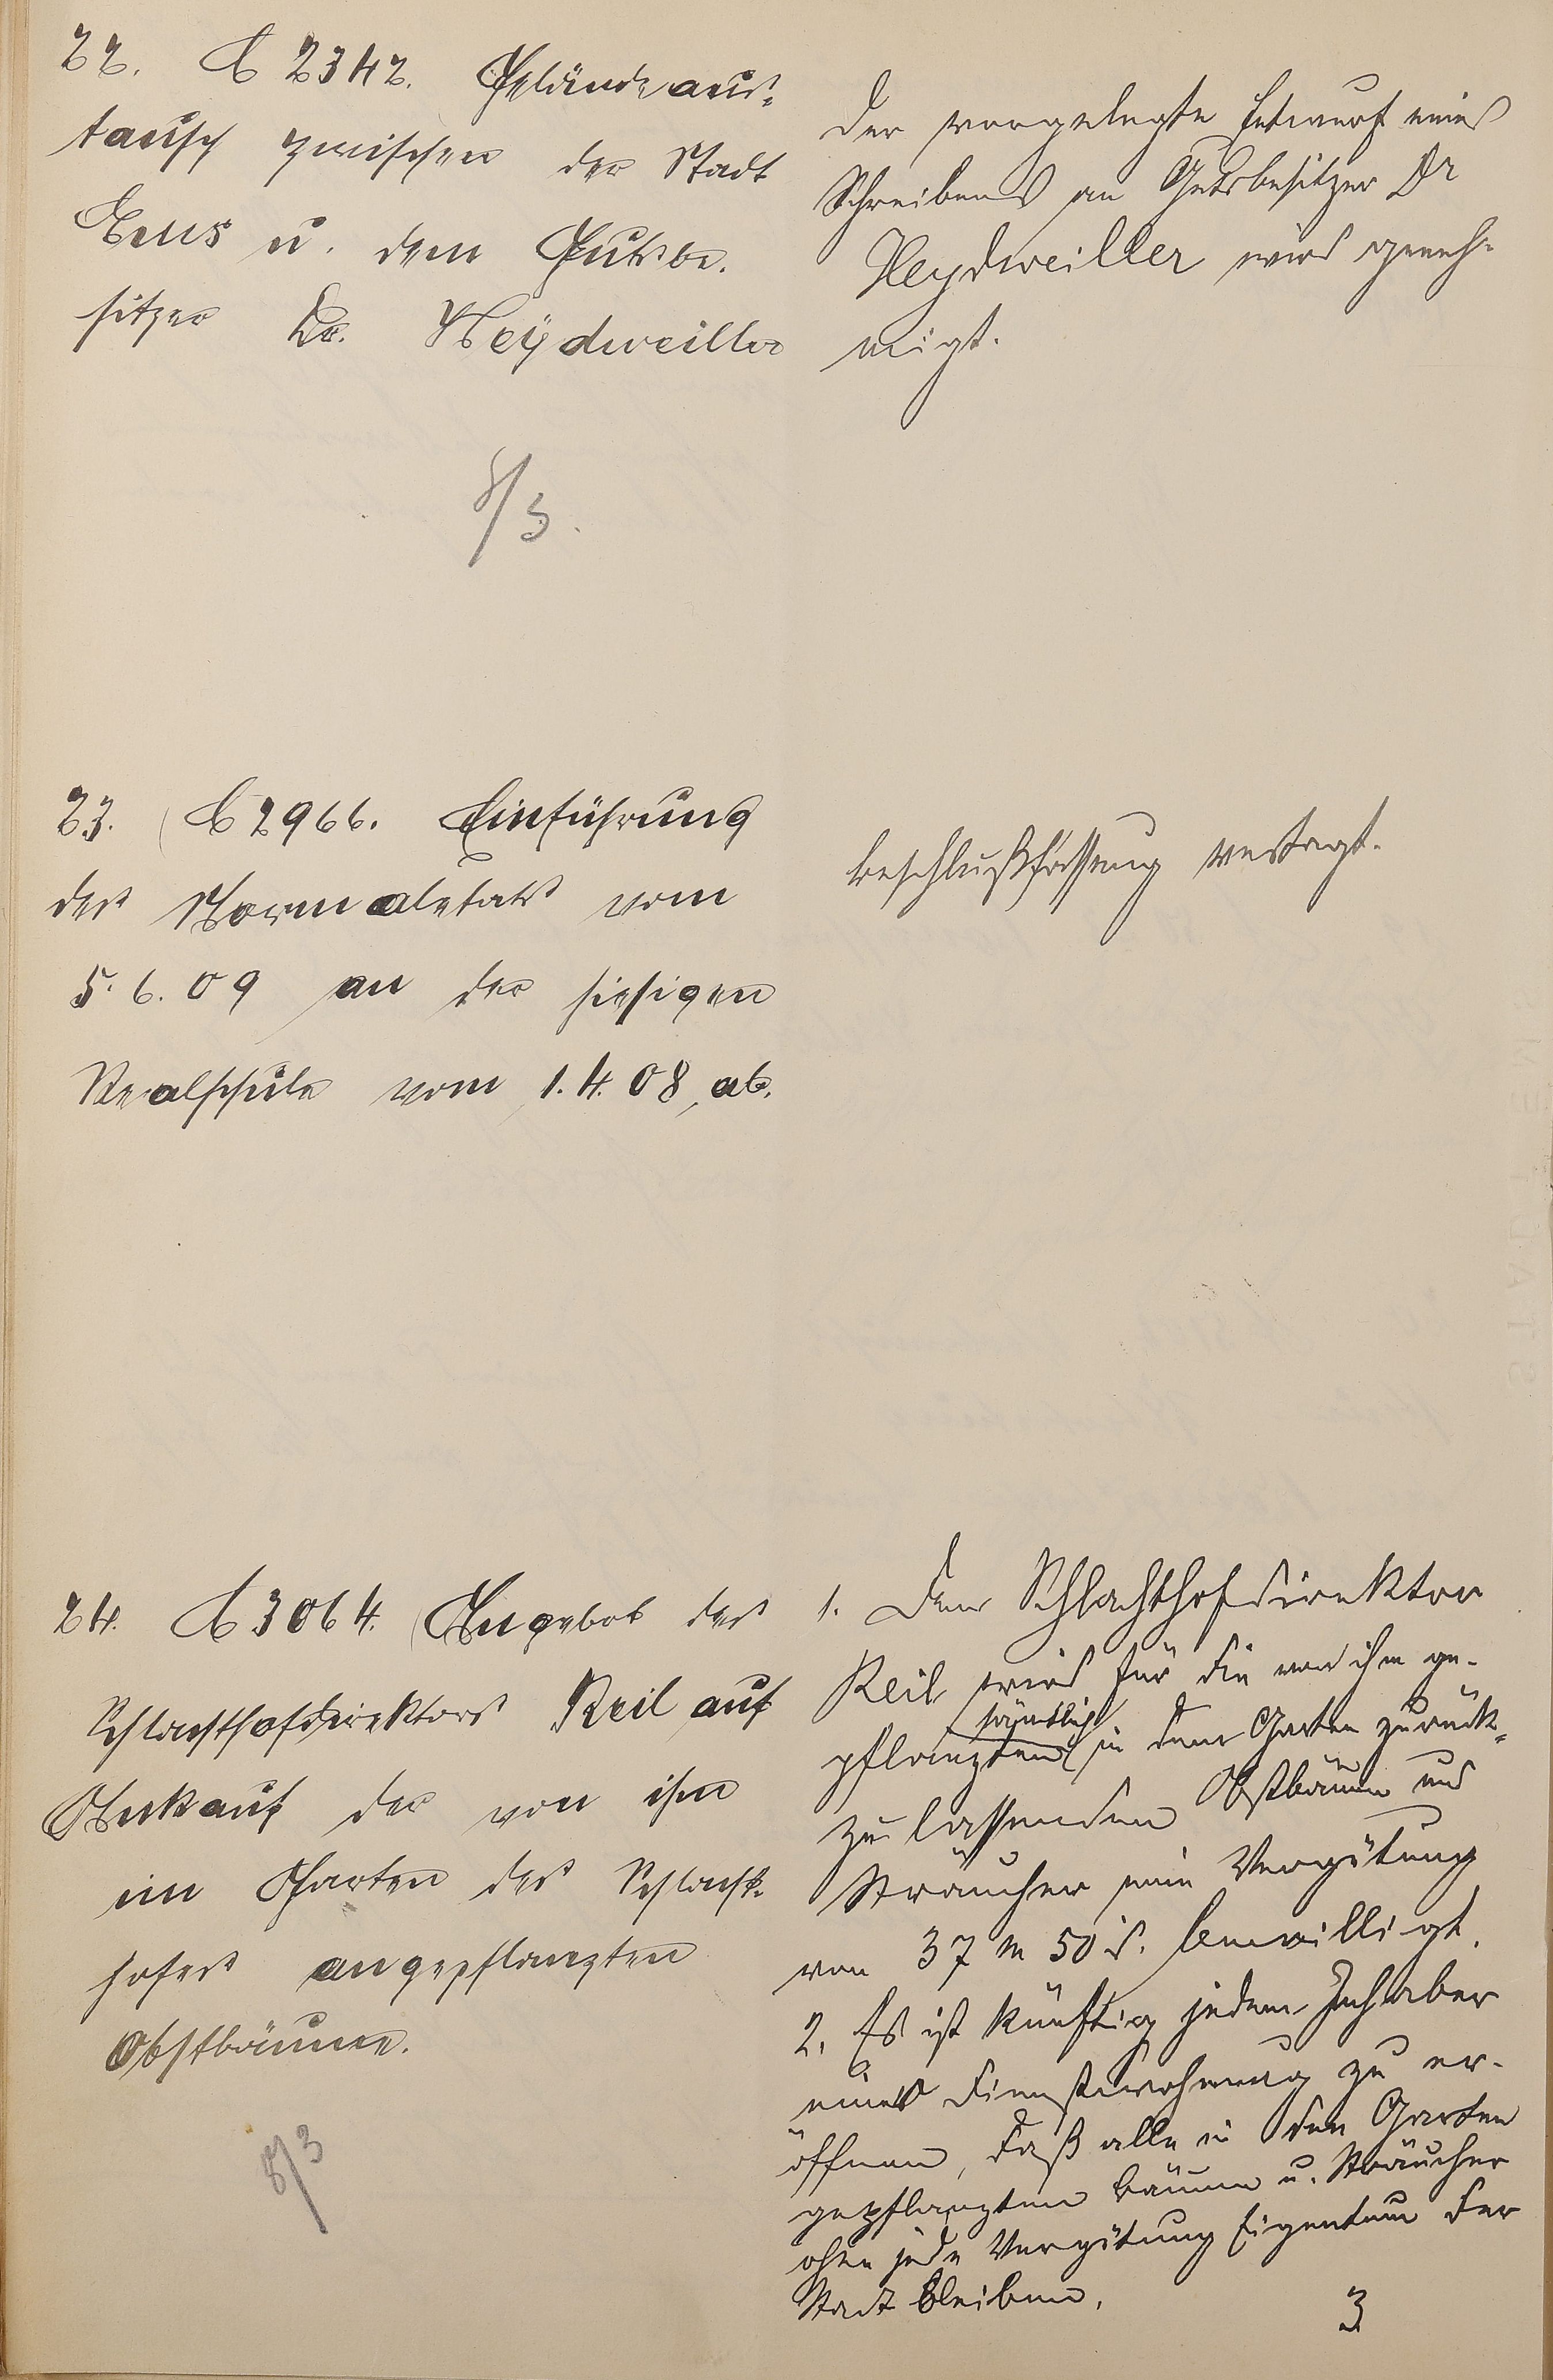 22. C 2342. Geländeaus-
tausch zwischen der Stadt
Ems u. dem Gutsbe-
sitzer Dr. Heydweiller
8/3.
Der vorgelegte Entwurf eines
Schreibens an Gutsbesitzer Dr
Heydweiller wird geneh-
migt.
23. C 2966. Einführung
des Normaletats vom
5.6.09 an der hiesigen
Realschule vom 1.4.08 ab.
Beschlußfassung vertagt.
24. C 3064. Angebot des
Schlachthofdirektors Keil auf
Ankauf der von ihm
im Garten des Schlacht-
hofes angepflanzten
Obstbäume.
8/3
1. Dem Schlachthofdirektor
Keil wird für die von ihm ge-
sämtlich
pflanzten in dem Garten zurück-
zu lassenden Obstbäume und
Sträucher eine Vergütung
von 37 M 50 bewilligt.
2. Es ist künftig jedem Inhaber
einer Dienstwohnung zu er-
öffnen, daß alle in den Garten
gepflanzten Bäume u. Sträucher
ohne jede Vergütung Eigentum der
Stadt bleiben.
3